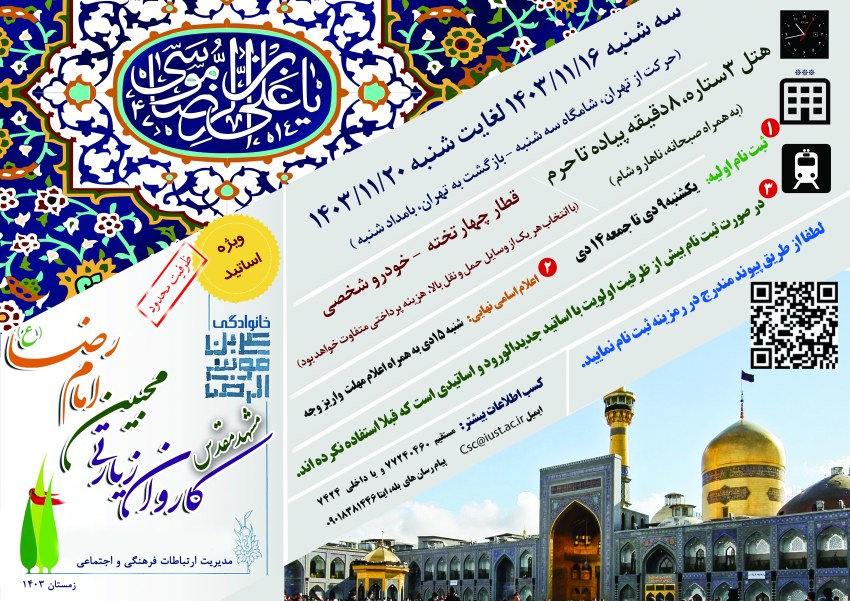 یا علی بن موسی الرضا
ویژه
اساتید
ظرفیت محدود
خانوادگی
علی بن
موسی
الرضا
کاروان زیارتی
مشهد مقدس
محبین
امام
رضا (ع)
مدیریت ارتباطات فرهنگی و اجتماعی
زمستان ۱۴۰۳
سه شنبه ۱۴۰۳/۱۱/۱۶ لغایت شنبه ۱۴۰۳/۱۱/۲۰
(حرکت از تهران، شامگاه سه شنبه - بازگشت به تهران، بامداد شنبه)
هتل ۳ ستاره، ۸ دقیقه پیاده تا حرم
(به همراه صبحانه، ناهار و شام)
قطار چهار تخته - خودرو شخصی
(با انتخاب هر یک از وسایل حمل و نقل بالا، هزینه پرداختی متفاوت خواهد بود)
۱ ثبت نام اولیه: یکشنبه ۹ دی تا جمعه ۱۴ دی
۲ اعلام اسامی نهایی: شنبه ۱۵ دی به همراه اعلام مهلت واریز وجه
۳ در صورت ثبت نام بیش از ظرفیت اولویت با اساتید جدیدالورود و اساتیدی است که قبلا استفاده نکرده اند.
لطفا از طریق پیوند مندرج در رمزینه ثبت نام نمایید.
کسب اطلاعات بیشتر: مستقیم ۷۷۲۴۰۴۶۰ و یا داخلی ۷۴۲۴
ایمیل Csc@iust.ac.ir پیام رسان های بله، ایتا ۰۹۰۱۸۳۸۱۴۴۶